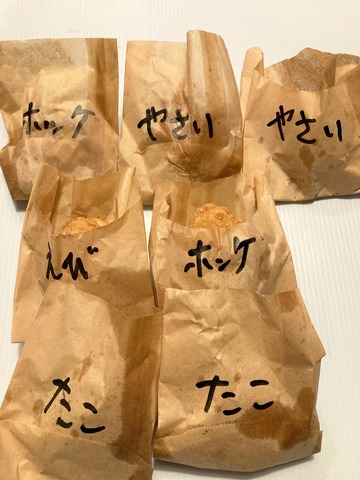 ホッケ
やさい
やさい
えび
ホッケ
たこ
たこ